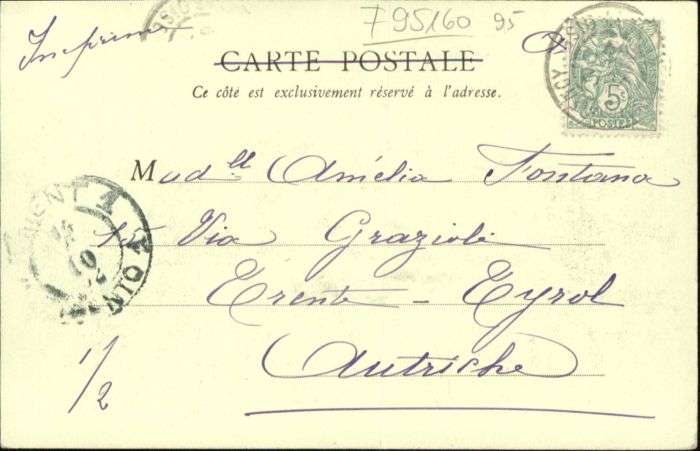 795160 95
Imprimé
CARTE POSTALE
Ce côté est exclusivement réservé à l'adresse.
5c
POSTES
Mad^lle Amélia Fontana
15 Via Grazioli
Trente - Tyrol
Autriche
1/2